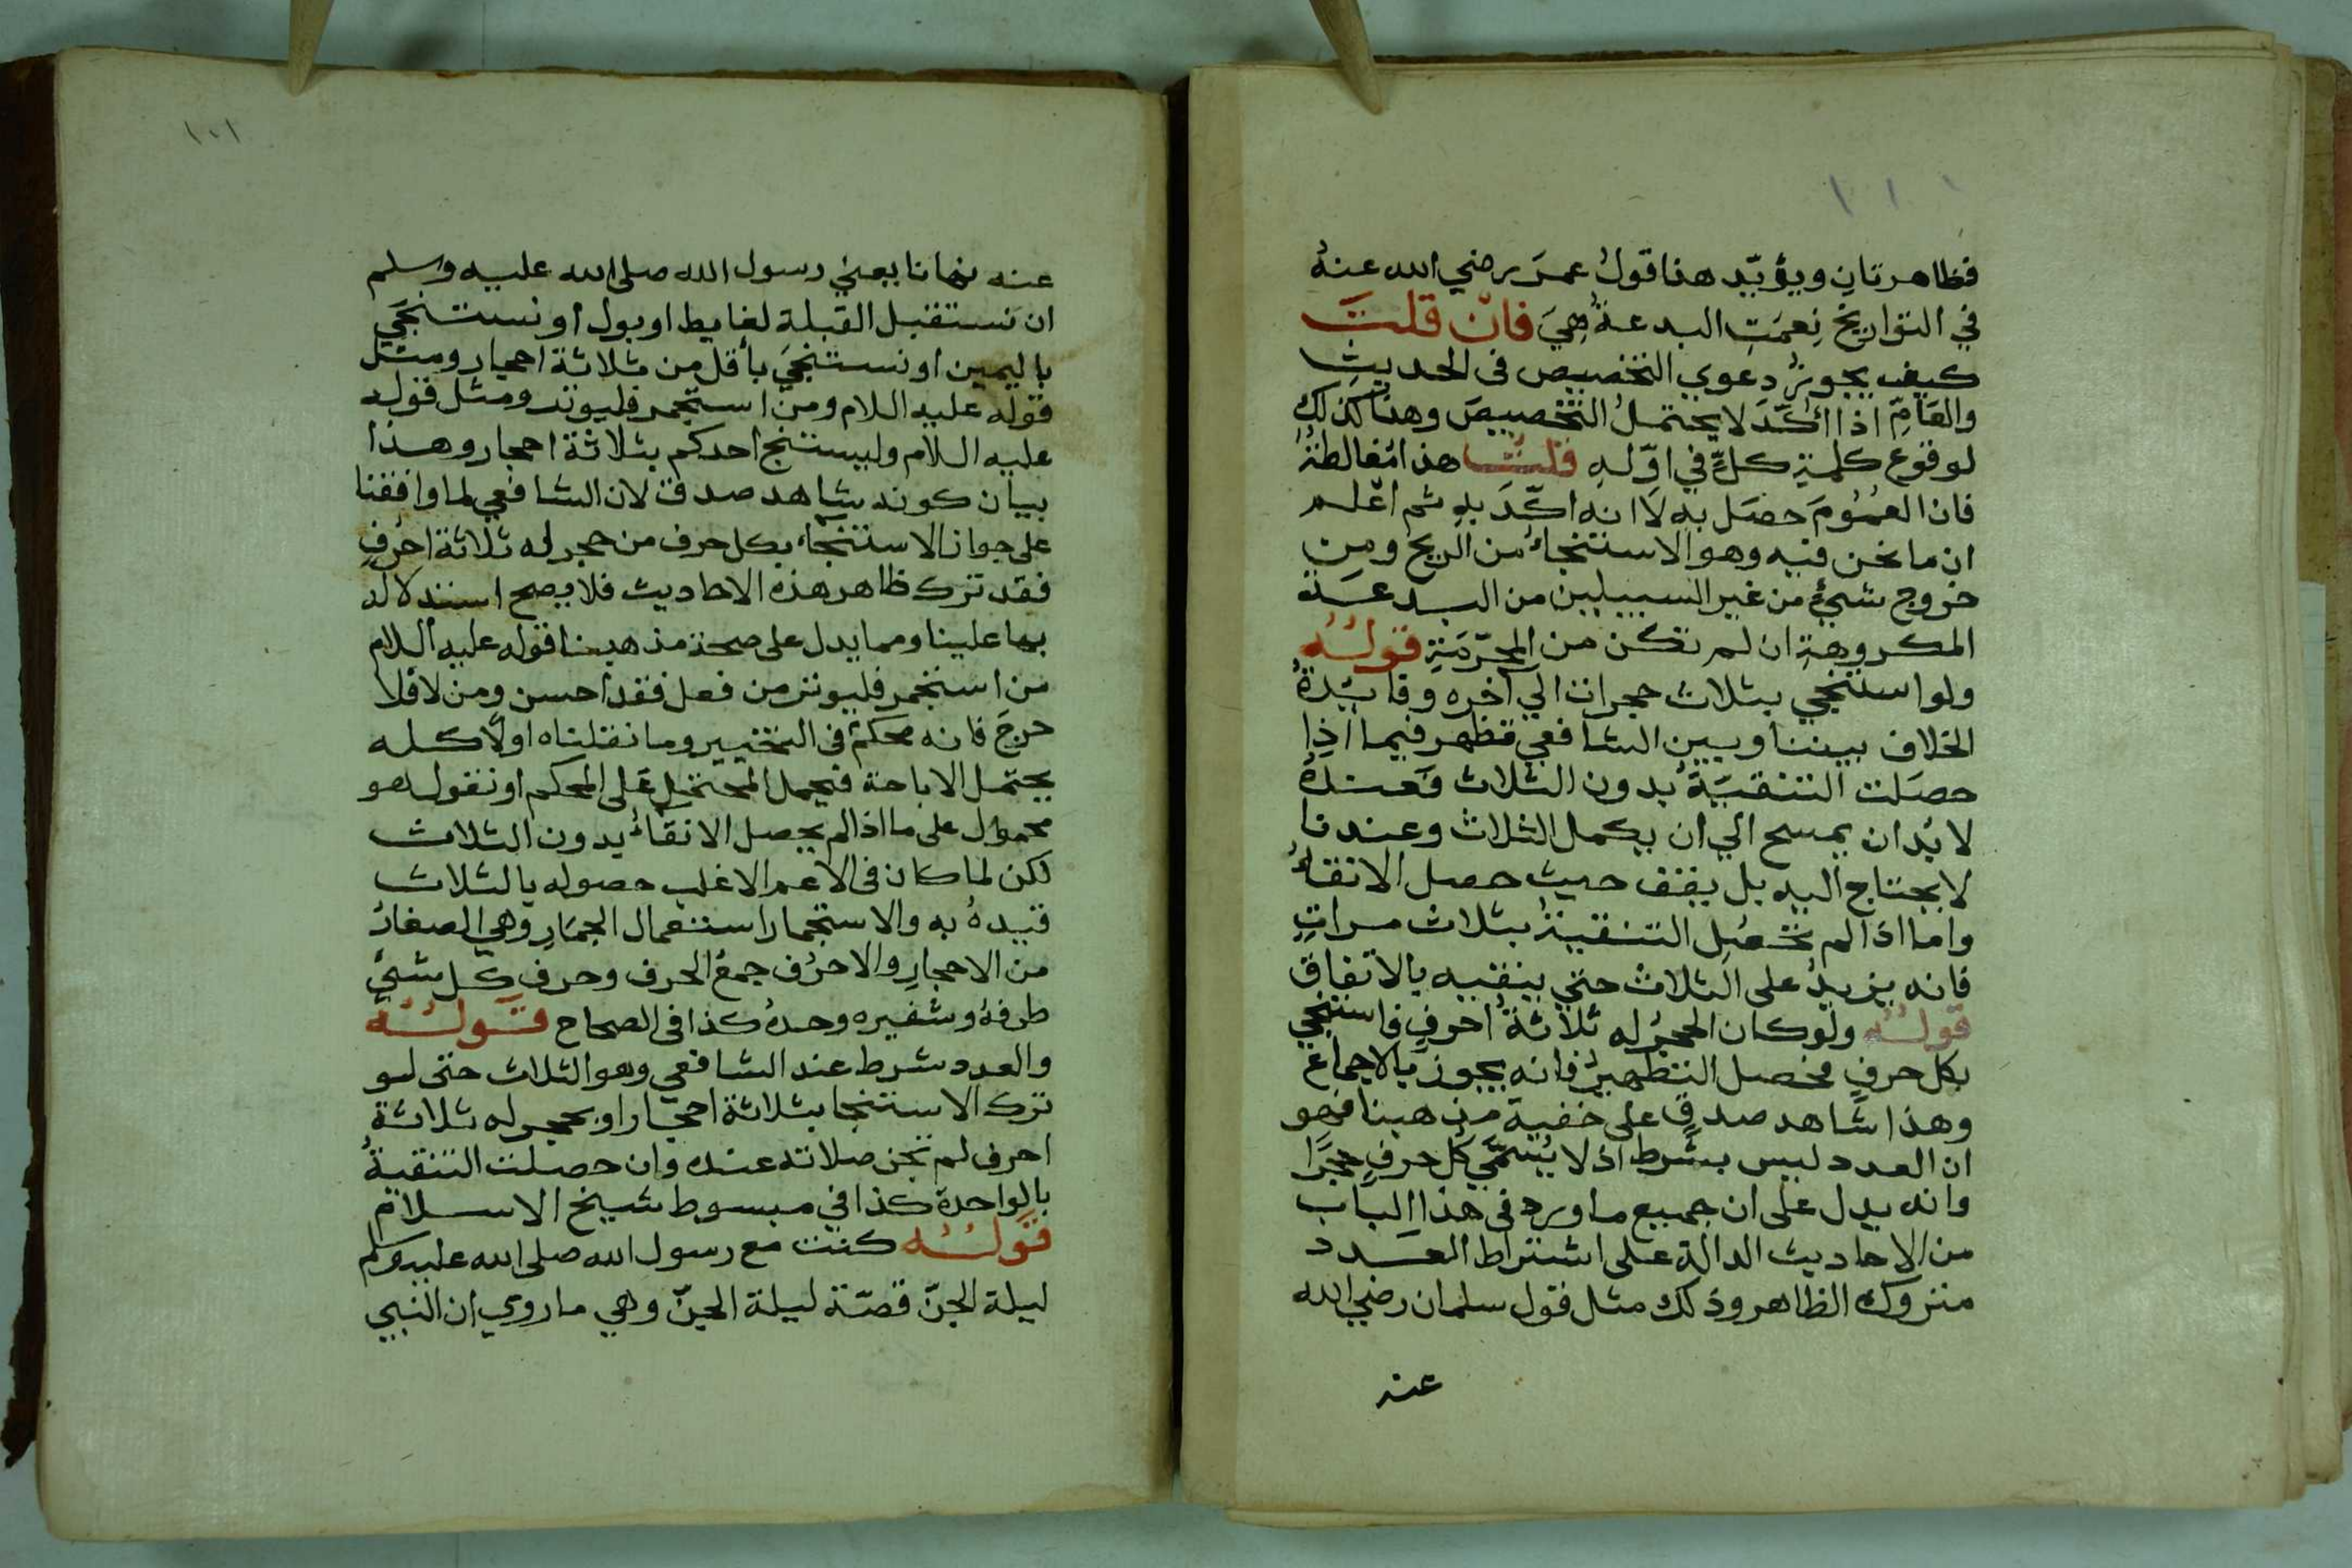 فظاهرتان ويؤيّد هذا قولُ عمرَ رضي الله عنهُ
في التواريخ نِعمَتِ البدعةُ هِيَ فانْ قلتَ
كيف يجوزُ دعوي التخصيص فى الحديثِ
والعَامّ اذا اكّدَ لا يحتملُ التخصيصَ وهنا كذلك
لوقوع كلمةِ كلٍّ في اوّلهِ قلتُ هذا مُغالطةٌ
فان العُمُومَ حصَل به لَا انه اكّدَ بهِ ثم اعْلم
ان ما نحن فيه وهو الاستنجاءُ من الريح ومِن
خروج شيءٍ من غير السبيلين من البدعَة
المكروهةِ ان لم تكن من المحرّمَةِ قولُهُ
ولو استنجي بثلاث حجرات الي آخره وفائدةُ
الخلاف بيننا وبين الشافعي تظهر فيما اذا
حصَلت التنقيَةُ بدون الثلاث فعندهُ
لا بُد ان يمسح الي ان يكمل الثلاث وعندنا
لا يحتاج اليه بل يقف حيث حصل الانقاءُ
واما اذا لم تحصُلِ التنقيةُ بثلاث مراتٍ
فانه يزيدُ على الثلاث حتي ينقيه بالاتفاق
قولُهُ ولو كان الحجرُ له ثلاثةُ احرفٍ فاستنجي
بكل حرفٍ فحصل التطهيرُ فانه يجوز بالاجماع
وهذا شاهد صدقٍ على خفية مذهبنا فهو
ان العدد ليس بشرط اذ لا يُسمّي كل حرفٍ حجرًا
وانه يدل على ان جميع ما ورد فى هذا الباب
من الاحاديث الدالة على اشتراط العَدد
متروك الظاهر وذلك مثل قول سلمان رضي الله
عنه
١٠١
عنه نهانا يعني رسول الله صلى الله عليه وسلم
ان نستقبل القبلة لغايط او بول او نستنجَي
باليمين او نستنجَي بأقل من ثلاثة احجار ومثل
قوله عليه السلام ومن استجمر فليوتر ومثل قوله
عليه السلام وليستنج احدكم بثلاثة احجار وهذا
بيان كونه شاهد صدق لان الشافعي لما وافقنا
على جواز الاستنجاء بكل حرف من حجر له ثلاثة احرُفٍ
فقد ترك ظاهر هذه الاحاديث فلا يصح استدلاله
بها علينا ومما يدل على صحة مذهبنا قوله عليه السلام
من استجمر فليوتر من فعل فقد احسن ومن لا فلا
حرجَ فانه محكمٌ فى التخيير وما نقلناه اولًا كله
يحتمل الاباحة فيحمل المحتمل على المحكم او نقول هو
محمول على ما اذا لم يحصل الانقاءُ بدون الثلاث
لكن لما كان فى الاعم الاغلب حصوله بالثلاث
قيدهُ به والاستجمار استعمال الجمَارِ وهي الصغارُ
من الاحجارِ والاحرُف جمعُ الحرف وحرف كل شئ
طرفهُ وشفيره وحدهُ كذا فى الصحاح قولُهُ
والعدد شرط عند الشافعي وهو الثلاث حتى لو
ترك الاستنجا بثلاثة احجار او بحجر له ثلاثة
احرف لم تجز صلاته عنده وان حصلت التنقيةُ
بالواحدة كذا في مبسوط شيخ الاسلام
قولُهُ كنت مع رسول الله صلى الله عليه وسلم
ليلة الجنّ قصّة ليلة الجنّ وهي ما روي ان النبي